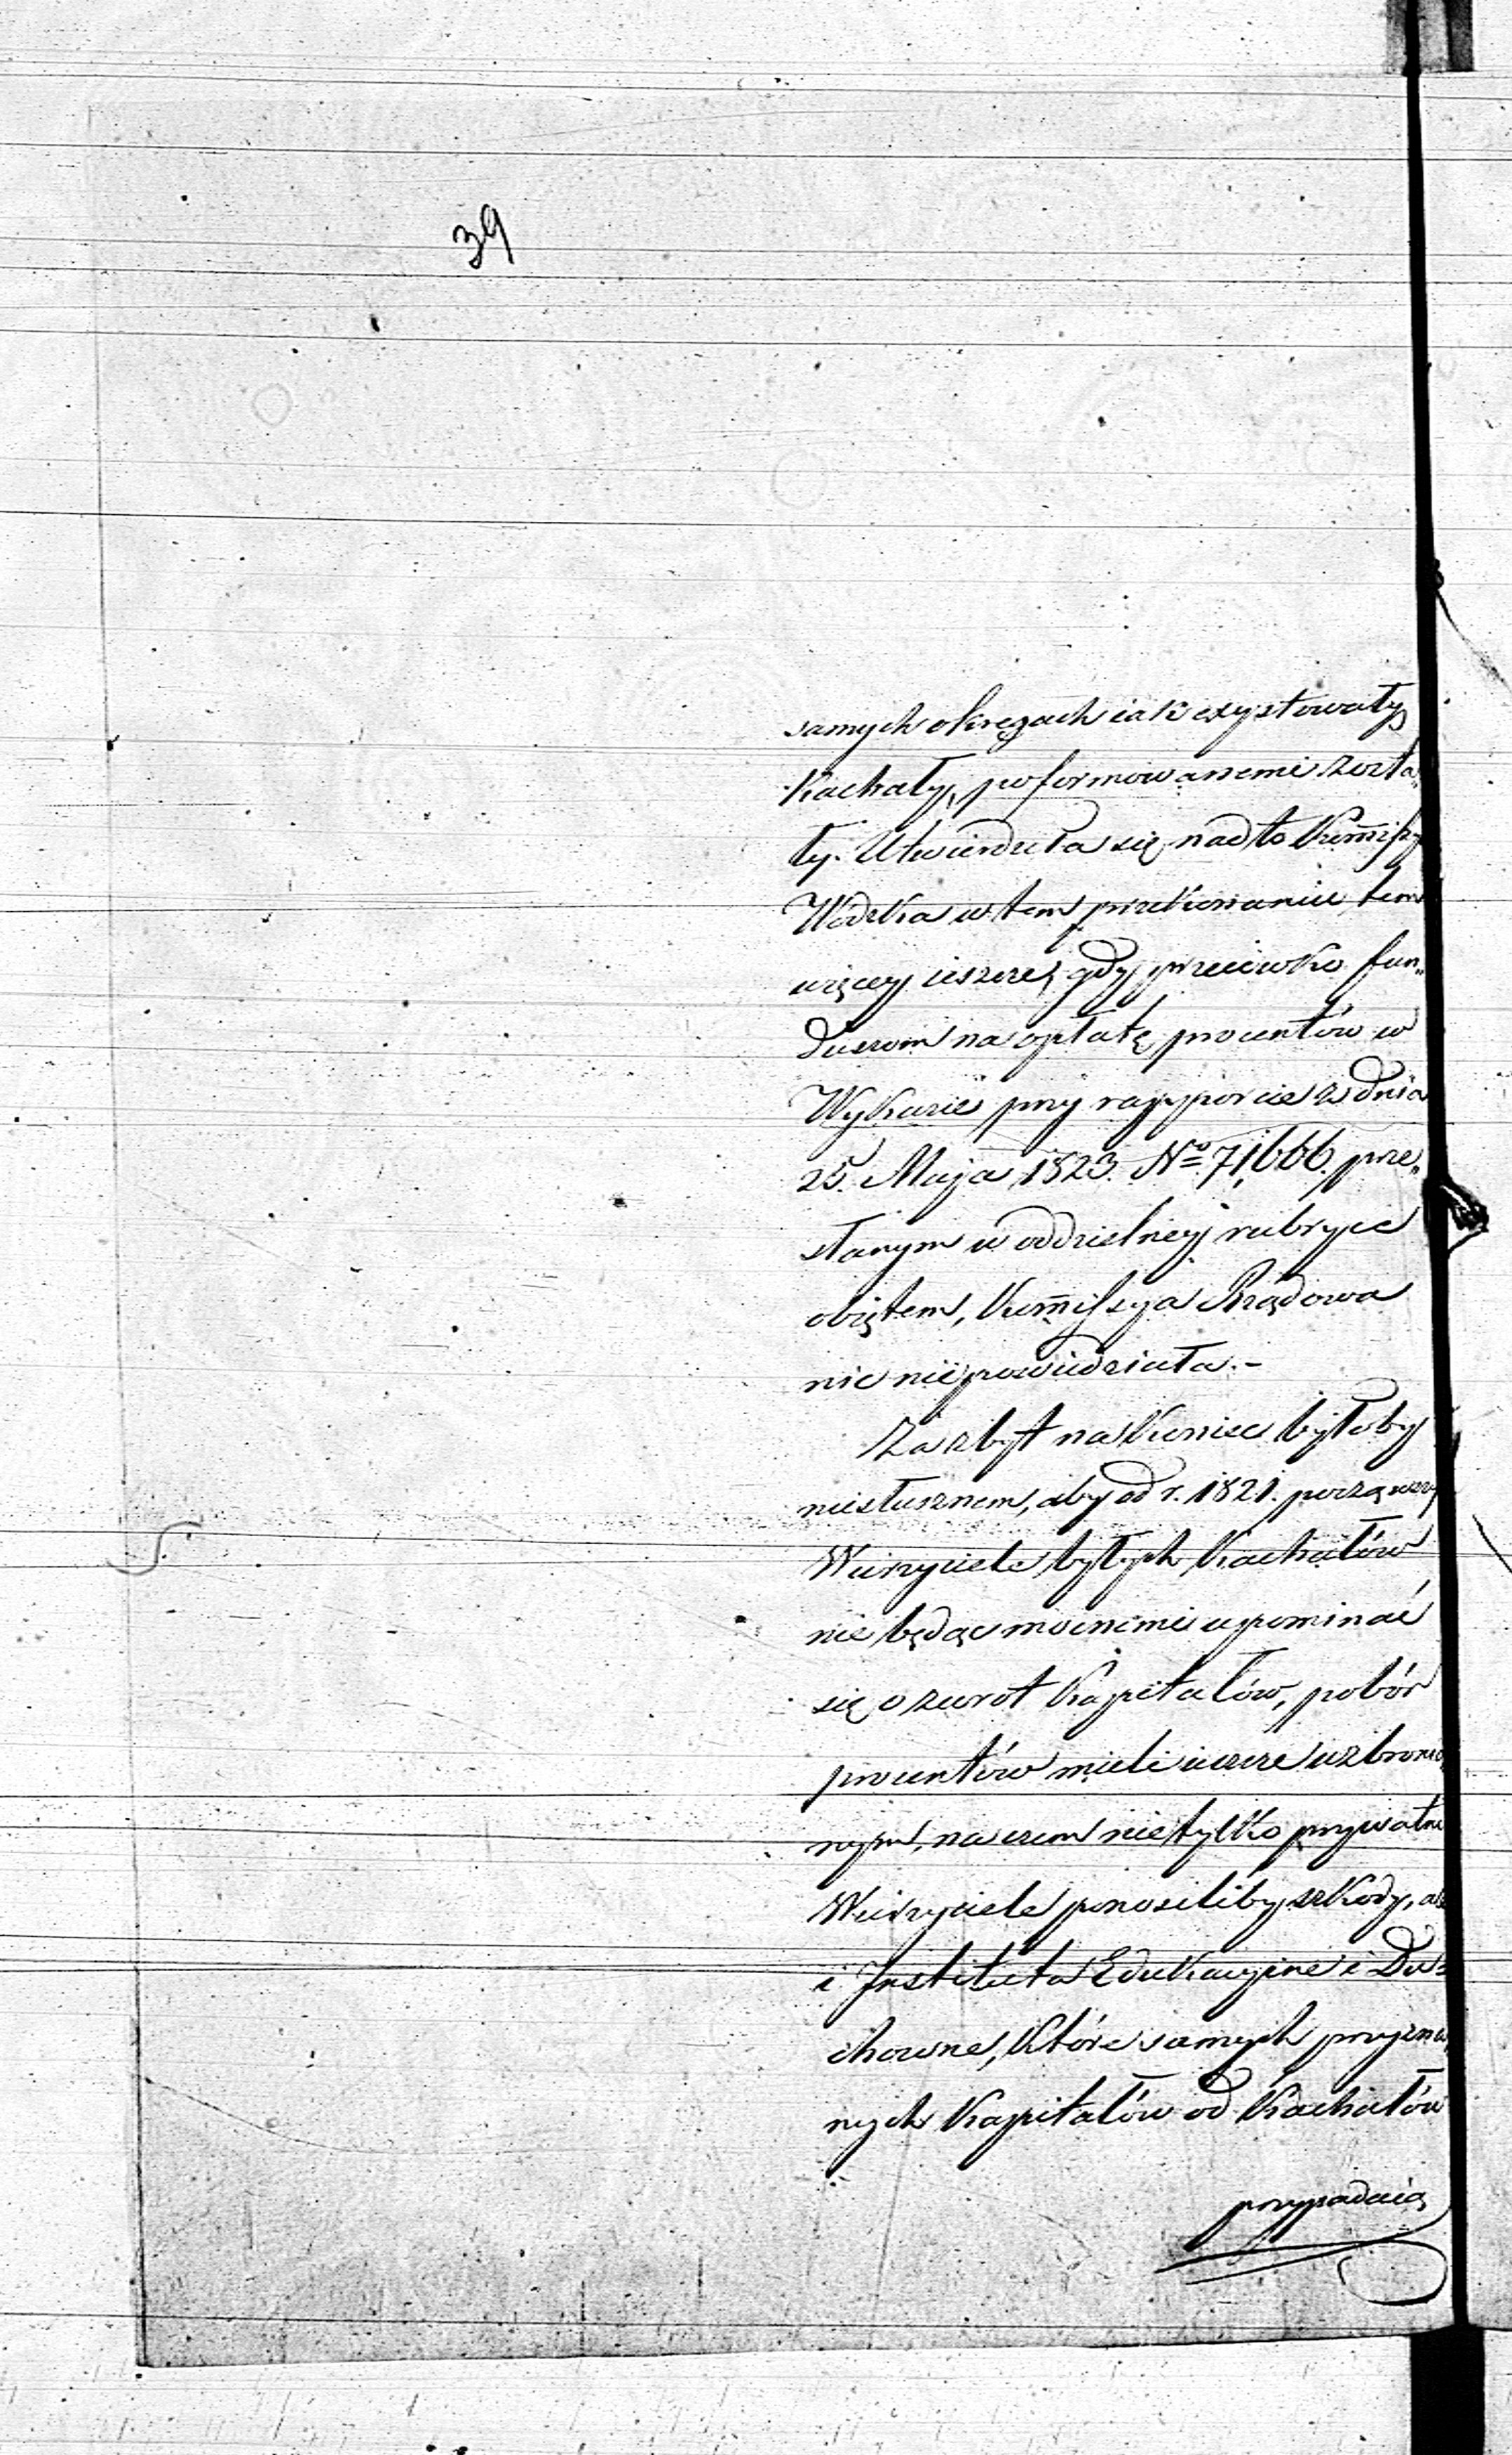 39
samych okręgach iak exystowały
Kachały, poformowanemi zosta„
ły. Utwierdziła się nadto Kom̃issy
Wdzka w tem przekonaniu, tem
więcey ieszcze, gdy przeciwko fun„
duszom na opłatę procentów w
Wykazie przy rapporcie z dnia
25. Maja 1823. No 71,666. prze„
słanym w oddzielney rubryce
obiętem, Kom̃issya Rządowa
nic nie powiedziała.-
Za zbyt nakoniec byłoby
niesłusznem, aby od r. 1821. począwszy
Wierzyciele byłych Kachałów
nie będąc mocnemi upominać
się o zwrot Kapitałów, pobór
procentów mieli ieszcze wzbronio
nym, na czem nie tylko prywatni
Wierzyciele ponosiliby szkody, ale
i Instituta Edukacyine i Du„
chowne, które samych przyzna
nych Kapitałów od Kachałów
przypadaią